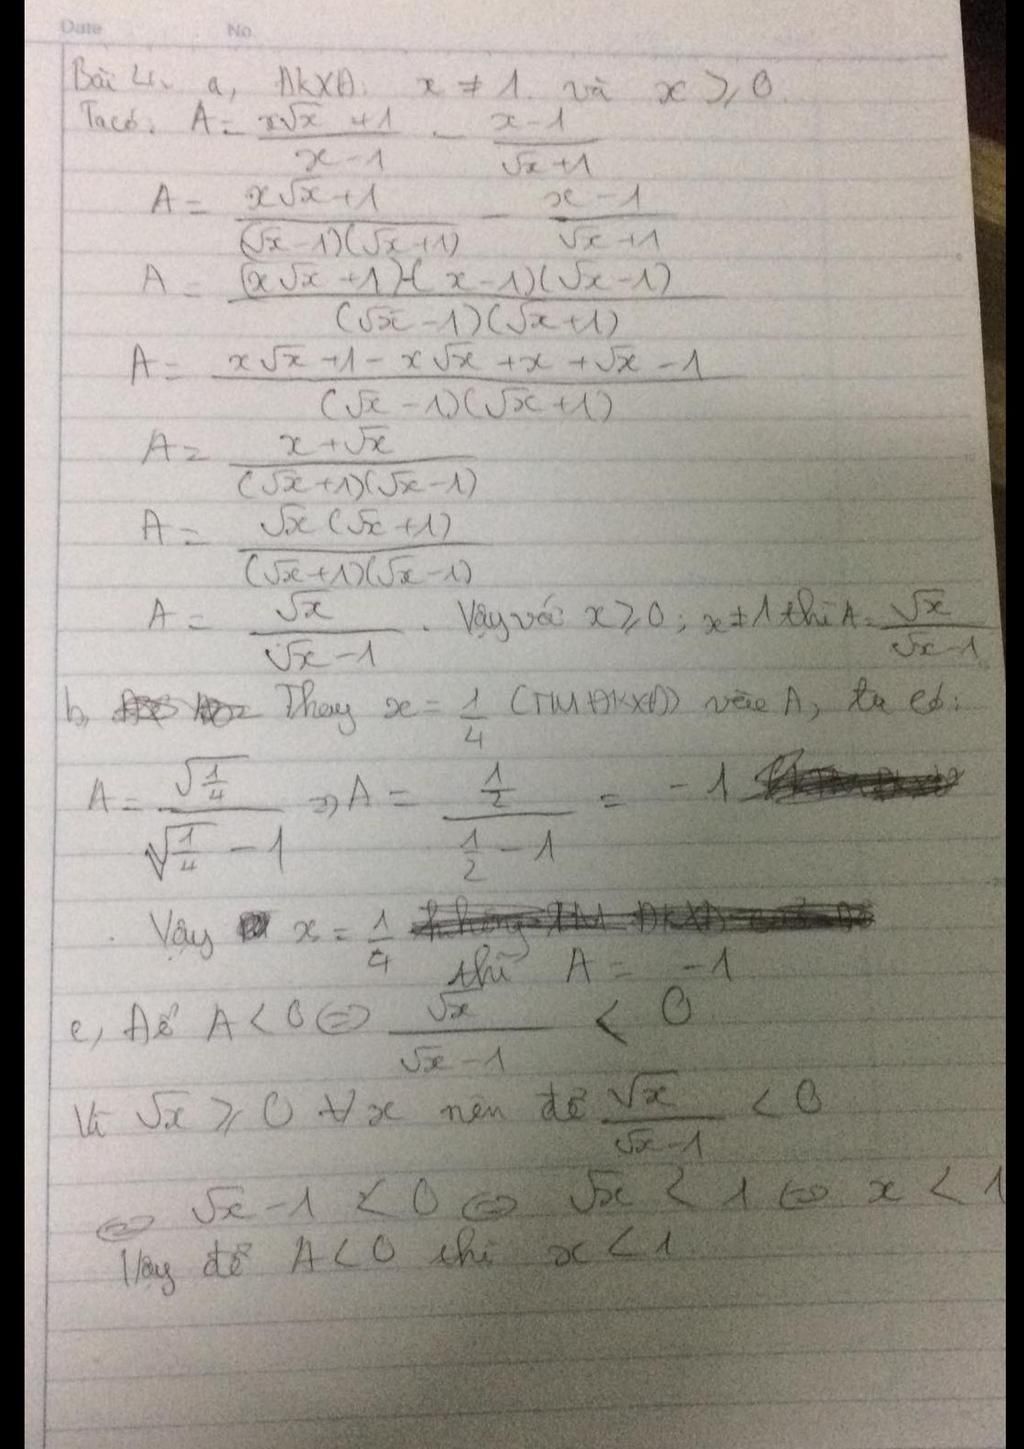 Date No
Bài 4. a, ĐKXĐ: x ≠ 1 và x ⩾ 0.
Ta có: A = (x√x + 1)/(x - 1) - (x - 1)/(√x + 1)
A = (x√x + 1)/((√x - 1)(√x + 1)) - (x - 1)/(√x + 1)
A = ((x√x + 1) - (x - 1)(√x - 1))/((√x - 1)(√x + 1))
A = (x√x + 1 - x√x + x + √x - 1)/((√x - 1)(√x + 1))
A = (x + √x)/((√x + 1)(√x - 1))
A = (√x(√x + 1))/((√x + 1)(√x - 1))
A = √x/(√x - 1). Vậy với x ⩾ 0; x ≠ 1 thì A = √x/(√x - 1)
b, Thay x = 1/4 (TM ĐKXĐ) vào A, ta có:
A = √(1/4)/(√(1/4) - 1) ⇒ A = (1/2)/(1/2 - 1) = -1
Vậy x = 1/4
thì A = -1
c, Để A < 0 ⇔ √x/(√x - 1) < 0
Vì √x ⩾ 0 ∀x nên để √x/(√x - 1) < 0
⇔ √x - 1 < 0 ⇔ √x < 1 ⇔ x < 1
Vậy để A < 0 thì x < 1